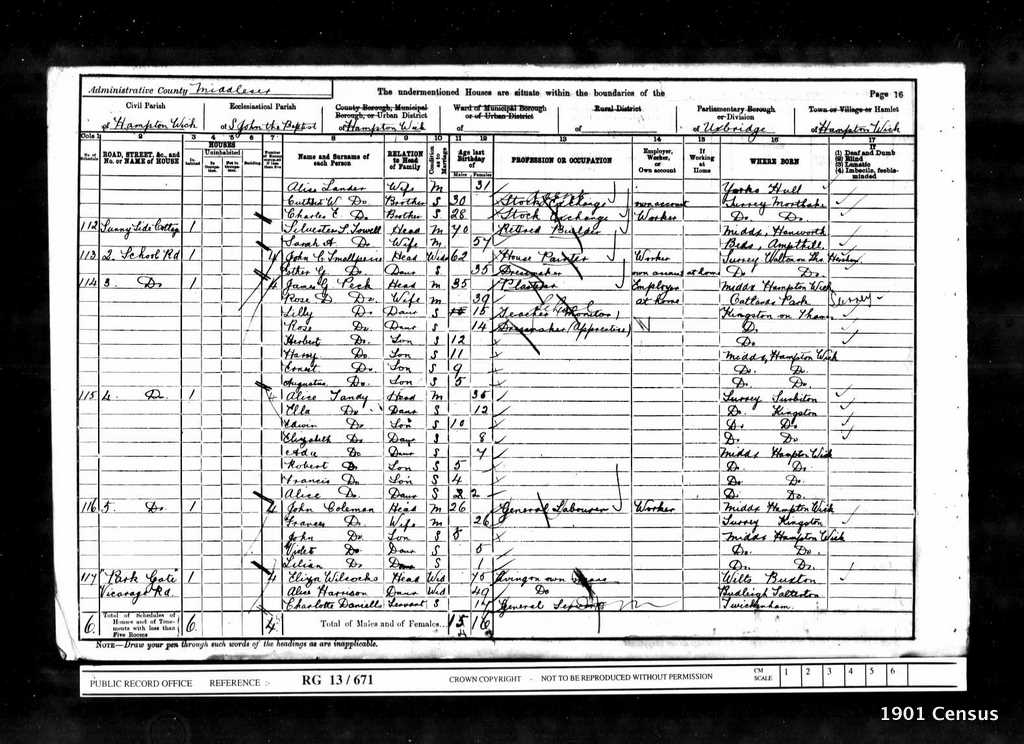 Administrative County Middlesex
The undermentioned Houses are situate within the boundaries of the
Page 16
Civil Parish
of Hampton Wick
Ecclesiastical Parish
of St John the Baptist
County Borough, Municipal Borough, or Urban District
of Hampton Wick
Ward of Municipal Borough or of Urban District
of
Rural District
of
Parliamentary Borough or Division
of Uxbridge
Town or Village or Hamlet
of Hampton Wick
Cols 1 2 3 4 5 6 7 8 9 10 11 12 13 14 15 16 17
ROAD, STREET, &c., and No. or NAME of HOUSE
HOUSES
Uninhabited
Building
Name and Surname of each Person
RELATION to Head of Family
Condition as to Marriage
Age last Birthday of
Males Females
PROFESSION OR OCCUPATION
Employer, Worker, or Own account
If Working at Home
WHERE BORN
If (1) Deaf and Dumb (2) Blind (3) Lunatic (4) Imbecile, feeble-minded
Alice Lander Wife M 31 Yorks Hull
Cuthbt W Do Brother S 30 Stock Exchange own account Surrey Mortlake
Charles E Do Brother S 28 Stock Exchange Worker Do. Do.
112 Sunny Side Cottage 1 Silvester L. Towell Head M 70 Retired Builder Midds, Hanworth
Sarah A Do Wife M 57 Beds, Ampthill
113 2. School Rd 1 4 John C Head Wid 62 House Painter Worker Surrey Walton on Ths
Esther G. Do. Daur S 35 Dressmaker own account at home Do Do.
114 3. Do 1 4 James G Peck Head M 35 Plasterer Employer Midds Hampton Wick
Rose D Do. Wife M 39 at home Oatlands Park Surrey
Lilly Do Daur S 15 Teacher (Monitor) Kingston on Thames
Rose Do. Daur S 14 Dressmaker (Apprentice) Do.
Herbert Do. Son S 12 Do.
Harry Do. Son S 11 Midds, Hampton Wick
Ernest Do. Son S 9 Do. Do.
Augustus Do. Son S 5 Do. Do.
115 4. Do. 1 4 Alice Tandy Head M 36 Surrey Surbiton
Ella Do Daur S 12 Do. Kingston
Edwin Do Son S 10 Do Do
Elizabeth Do Daur S 8 Do Do
Ada Do Daur S 7 Midds Hampton Wick
Robert Do Son S 5 Do. Do.
Francis Do Son S 4 Do. Do.
Alice Do. Daur S 2 Do. Do.
116 5. Do. 1 4 John Coleman Head M 26 General Labourer Worker Midds Hampton Wick
Frances Do. Wife M 26 Surrey Kingston
John Do. Son S 8 Midds Hampton Wick
Violet Do. Daur S 5 Do. Do.
Lilian Do. Daur S 1 Do. Do.
117 "Park Gate" 1 4 Eliza Wilcocks Head Wid 70 Living on own means Wilts
Vicarage Rd. Alice Harrison Daur Wid 49 Do Budleigh Salterton
Charlotte Danielle Servant S 17 General Servant Twickenham.
6 Total of Schedules of Houses and of Tenements with less than Five Rooms 6 4 Total of Males and of Females... 15 16
NOTE—Draw your pen through such words of the headings as are inapplicable.
PUBLIC RECORD OFFICE REFERENCE :- RG 13/671 CROWN COPYRIGHT - NOT TO BE REPRODUCED WITHOUT PERMISSION CM SCALE 1 2 3 4 5 6
1901 Census